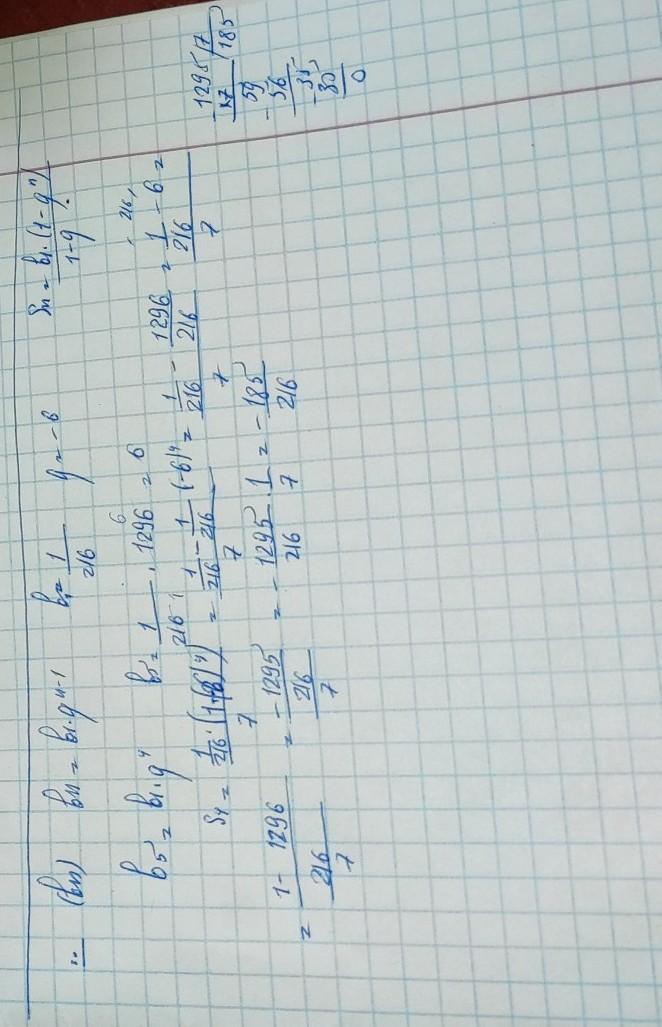 ∺ (bn) bn = b1·q^n-1 b1 = 1/216 q = -6 Sn = b1·(1-q^n)/1-q
b5 = b1·q^4 b5 = 1/216 · 1296 = 6
S4 = 1/216·(1-(-6)^4)/7 = 1/216 - 1/216 (-6)^4/7 = 1/216 - 1296/216/7 = 1/216 - 6/7 =
= 1-1296/216/7 = -1295/216/7 = - 1295/216 · 1/7 = - 185/216
1295 7
185
59
56
35
0